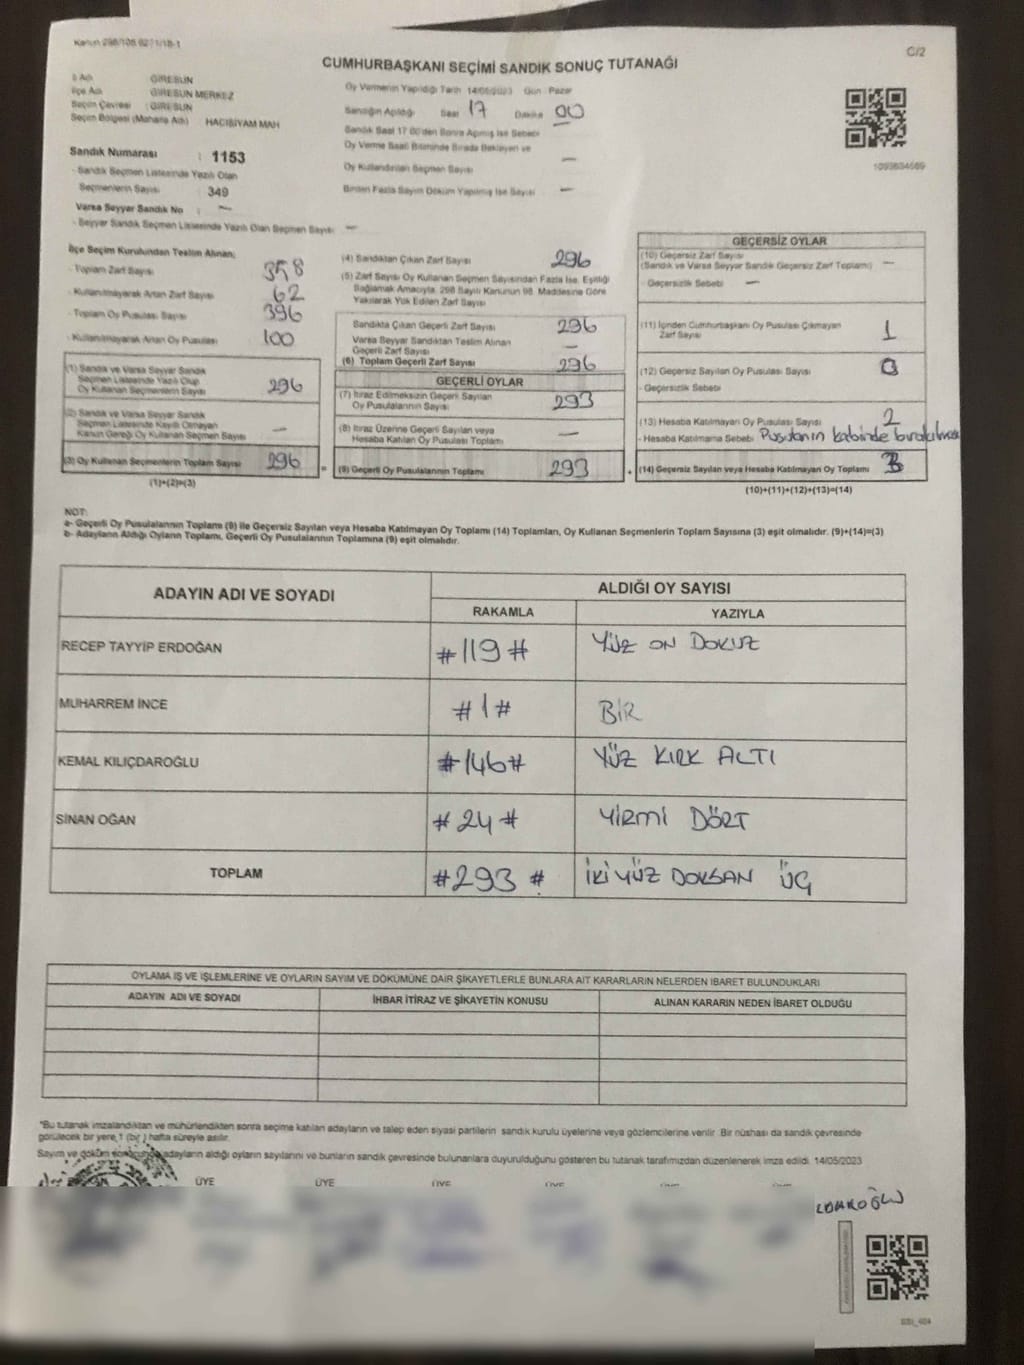 Kanun 298/105.
C/2
CUMHURBAŞKANI SEÇİMİ SANDIK SONUÇ TUTANAĞI
İl Adı GİRESUN
İlçe Adı GİRESUN MERKEZ
Seçim Çevresi : GİRESUN
Seçim Bölgesi (Mahalle Adı) HACISİYAM MAH
Oy Vermenin Yapıldığı Tarih 14/05/2023 Gün : Pazar
Sandığın Açıldığı Saat 17 Dakika 00
Sandık Saat 17.00'den Sonra Açılmış İse Sebebi
Oy Verme Saati Bitiminde Sırada Bekleyen ve
Oy Kullandırılan Seçmen Sayısı —
Birden Fazla Sayım Döküm Yapılmış İse Sayısı —
1093634569
Sandık Numarası : 1153
- Sandık Seçmen Listesinde Yazılı Olan
Seçmenlerin Sayısı : 349
Varsa Seyyar Sandık No : —
- Seyyar Sandık Seçmen Listesinde Yazılı Olan Seçmen Sayısı —
İlçe Seçim Kurulundan Teslim Alınan;
- Toplam Zarf Sayısı 358
- Kullanılmayarak Artan Zarf Sayısı 62
- Toplam Oy Pusulası Sayısı 396
- Kullanılmayarak Artan Oy Pusulası 100
(1) Sandık ve Varsa Seyyar Sandık
Seçmen Listesinde Yazılı Olup
Oy Kullanan Seçmenlerin Sayısı 296
(2) Sandık ve Varsa Seyyar Sandık
Seçmen Listesinde Kayıtlı Olmayan
Kanun Gereği Oy Kullanan Seçmen Sayısı —
(3) Oy Kullanan Seçmenlerin Toplam Sayısı 296 =
(1)+(2)=(3)
(4) Sandıktan Çıkan Zarf Sayısı 296
(5) Zarf Sayısı Oy Kullanan Seçmen Sayısından Fazla İse, Eşitliği
Sağlamak Amacıyla, 298 Sayılı Kanunun 98. Maddesine Göre
Yakılarak Yok Edilen Zarf Sayısı
Sandıkta Çıkan Geçerli Zarf Sayısı 296
Varsa Seyyar Sandıktan Teslim Alınan
Geçerli Zarf Sayısı —
(6) Toplam Geçerli Zarf Sayısı 296
GEÇERLİ OYLAR
(7) İtiraz Edilmeksizin Geçerli Sayılan
Oy Pusulalarının Sayısı 293
(8) İtiraz Üzerine Geçerli Sayılan veya
Hesaba Katılan Oy Pusulası Toplamı —
(9) Geçerli Oy Pusulalarının Toplamı 293 +
GEÇERSİZ OYLAR
(10) Geçersiz Zarf Sayısı
(Sandık ve Varsa Seyyar Sandık Geçersiz Zarf Toplamı) —
- Geçersizlik Sebebi —
(11) İçinden Cumhurbaşkanı Oy Pusulası Çıkmayan
Zarf Sayısı 1
(12) Geçersiz Sayılan Oy Pusulası Sayısı 0
- Geçersizlik Sebebi
(13) Hesaba Katılmayan Oy Pusulası Sayısı 2
- Hesaba Katılmama Sebebi Pusulanın kabinde
(14) Geçersiz Sayılan veya Hesaba Katılmayan Oy Toplamı 3
(10)+(11)+(12)+(13)=(14)
NOT:
a- Geçerli Oy Pusulalarının Toplamı (9) ile Geçersiz Sayılan veya Hesaba Katılmayan Oy Toplamı (14) Toplamları, Oy Kullanan Seçmenlerin Toplam Sayısına (3) eşit olmalıdır. (9)+(14)=(3)
b- Adayların Aldığı Oyların Toplamı, Geçerli Oy Pusulalarının Toplamına (9) eşit olmalıdır.
ADAYIN ADI VE SOYADI
ALDIĞI OY SAYISI
RAKAMLA YAZIYLA
RECEP TAYYİP ERDOĞAN #119# YÜZ ON DOKUZ
MUHARREM İNCE #1# BİR
KEMAL KILIÇDAROĞLU #146# YÜZ KIRK ALTI
SİNAN OĞAN #24# YİRMİ DÖRT
TOPLAM #293# İKİ YÜZ DOKSAN ÜÇ
OYLAMA İŞ VE İŞLEMLERİNE VE OYLARIN SAYIM VE DÖKÜMÜNE DAİR ŞİKAYETLERLE BUNLARA AİT KARARLARIN NELERDEN İBARET BULUNDUKLARI
ADAYIN ADI VE SOYADI İHBAR İTİRAZ VE ŞİKAYETİN KONUSU ALINAN KARARIN NEDEN İBARET OLDUĞU
*Bu tutanak imzalandıktan ve mühürlendikten sonra seçime katılan adayların ve talep eden siyasi partilerin sandık kurulu üyelerine veya gözlemcilerine verilir. Bir nüshası da sandık çevresinde
görülecek bir yere 1 (bir) hafta süreyle asılır.
Sayım ve döküm sonucunda adayların aldığı oyların sayılarını ve bunların sandık çevresinde bulunanlara duyurulduğunu gösteren bu tutanak tarafımızdan düzenlenerek imza edildi. 14/05/2023
ÜYE ÜYE ÜYE ÜYE